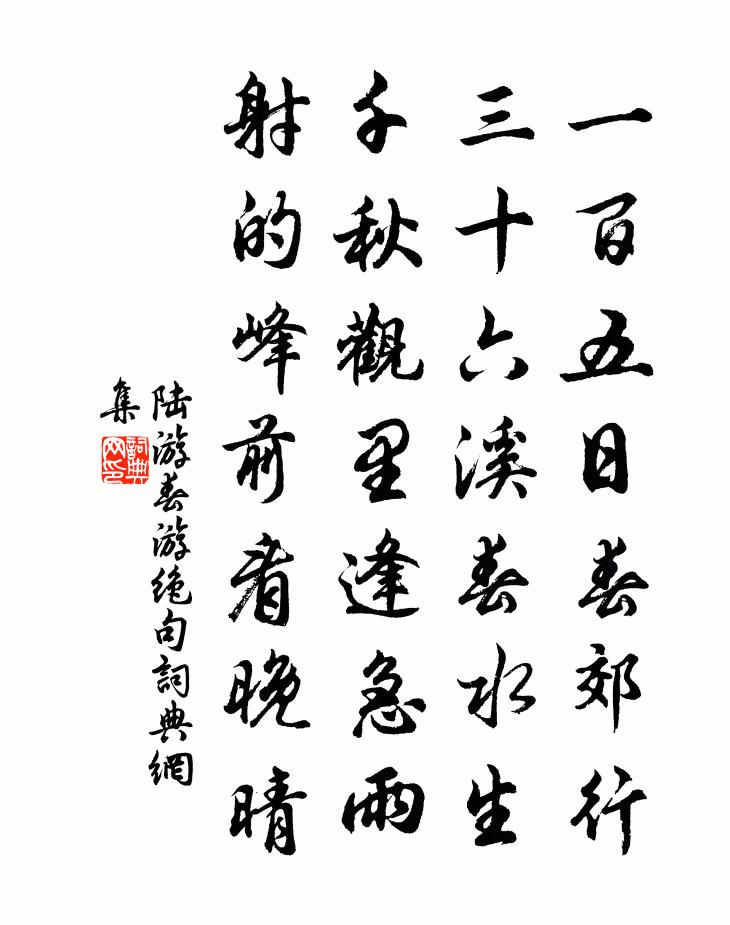 一百五日春郊行
三十六溪春水生
千秋觀里逢急雨
射的峰前看晚晴
陆游春游绝句詞典網
集
詞典
网印